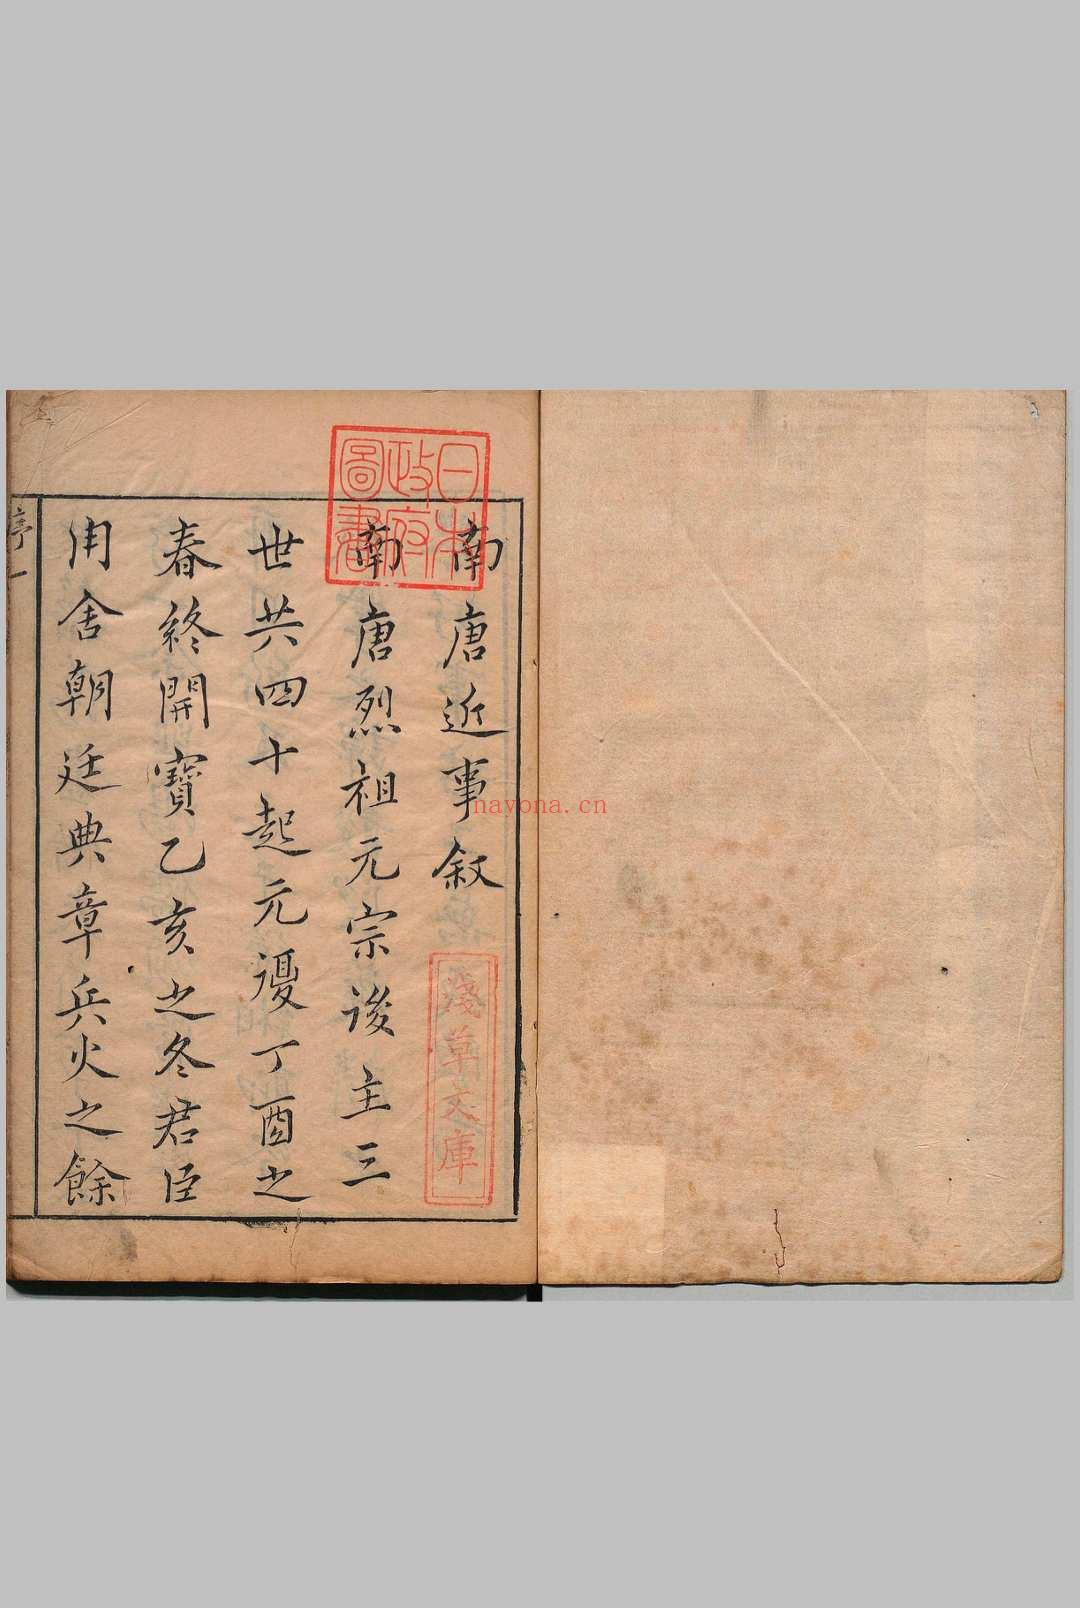 南唐近事敘
南唐烈祖元宗後主三
世共四十起元復丁酉之
春終開寶乙亥之冬君臣
用舍朝廷典章兵火之餘
序一
日本
政府
圖書
淺草文庫
nayona.cn